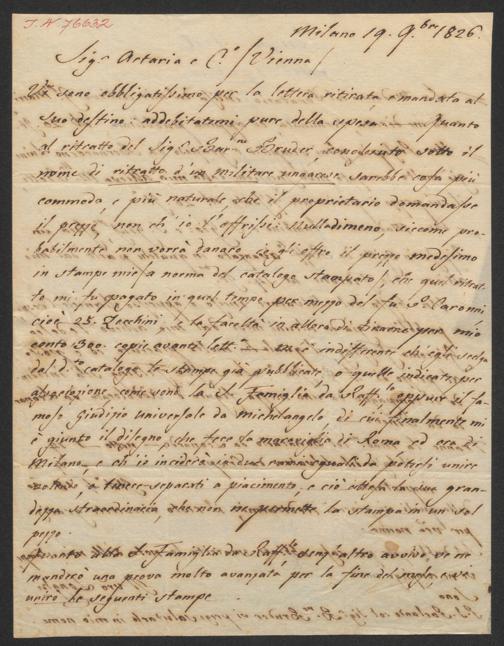 I.N. 76632
Milano 19. 9.bre 1826.
Sig.r Artaria e C.o /Vienna/
Vi sono obbligatissimo per la lettera ritirata, e mandata al
suo destino: addebitatemi pure della spesa. Quanto
al ritratto del Sig.r Bar.n Bruder, conosciuto sotto il
nome di ritratto d'un militare ungarese sarebbe cosa più
commoda e più naturale che il proprietario domandasse
il prezzo, non ch'io l'offrissi: nulladimeno, siccome pro-
babilmente non vorrà danaro, io gli offro il prezzo medesimo
in stampe mie /a norma del catalogo stampato/, che quel ritrat-
to mi fu pagato in quel tempo per mezzo del fu S.r Caronni
cioè 25. Zecchini e la facoltà in allora di tirarne per mio
conto 300. copie avanti lett. indifferente ch'egli scelga
dal d.to catalogo le stampe già pubblicate o quelle indicate per
associazione, come sono la S. Famiglia da Raff. eppure il fa-
moso Giudizio universale da Michelangelo, di cui finalmente mi
è giunto il disegno, che fece le maraviglie di Roma ed ora di
Milano, e ch'io inciderò in due rami eguali da potersi unire
volendo, o tenere separati a piacimento, e ciò attesa la sua gran-
dezza straordinaria, che non permette la stampa in un sol
pezzo.
Quanto alla S. Famiglia da Raff.le senz'altro avviso, ve ne
manderò una prova molto avanzata per la fine del mese, e vi
unirò le seguenti stampe